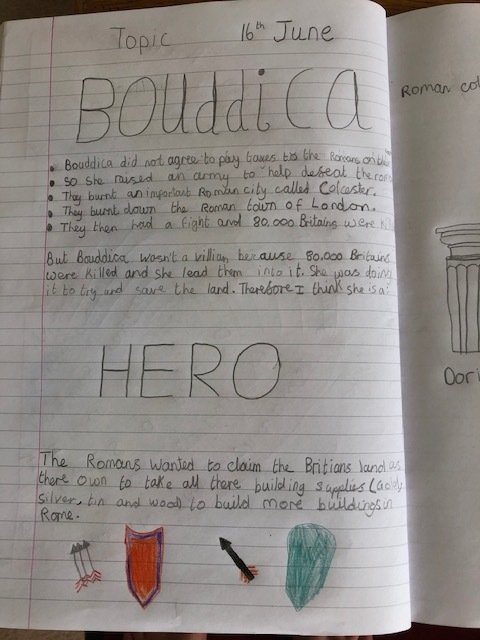 Topic 16th June
Bouddica
Bouddica did not agree to play taxes to the Romans on
So she raised an army to help defeat the
They burnt an important Roman city called Colcester.
They burnt down the Roman town of London.
They then had a fight and 80,000 Britains were
But Bouddica wasn't a villian because 80,000 Britains
were killed and she lead them into it. She was doing
it to try and save the land. Therefore I think she is a:
HERO
The Romans wanted to claim the Britians land as
there own to take all there building supplies (
silver, tin and wood) to build more buildings in
Rome.
Roman